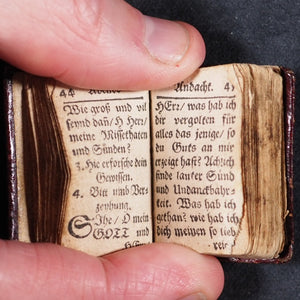 44
Wie groß und vil
seynd dañ/ O Herr/
meine Missethaten
und Sünden?
3. Hie erforsche dein
Gewissen.
4. Bitt umb Ver-
zeyhung.
Sihe/ O mein
GOTT und
Andacht. 45
HErr/ was hab ich
dir vergolten für
alles das jenige/ so
du Guts an mir
erzeigt hast? Ach ich
finde lauter Sünd
und Undanckbahr-
keit. Was hab ich
gethan? wie hab ich
dich meinen so lieb-